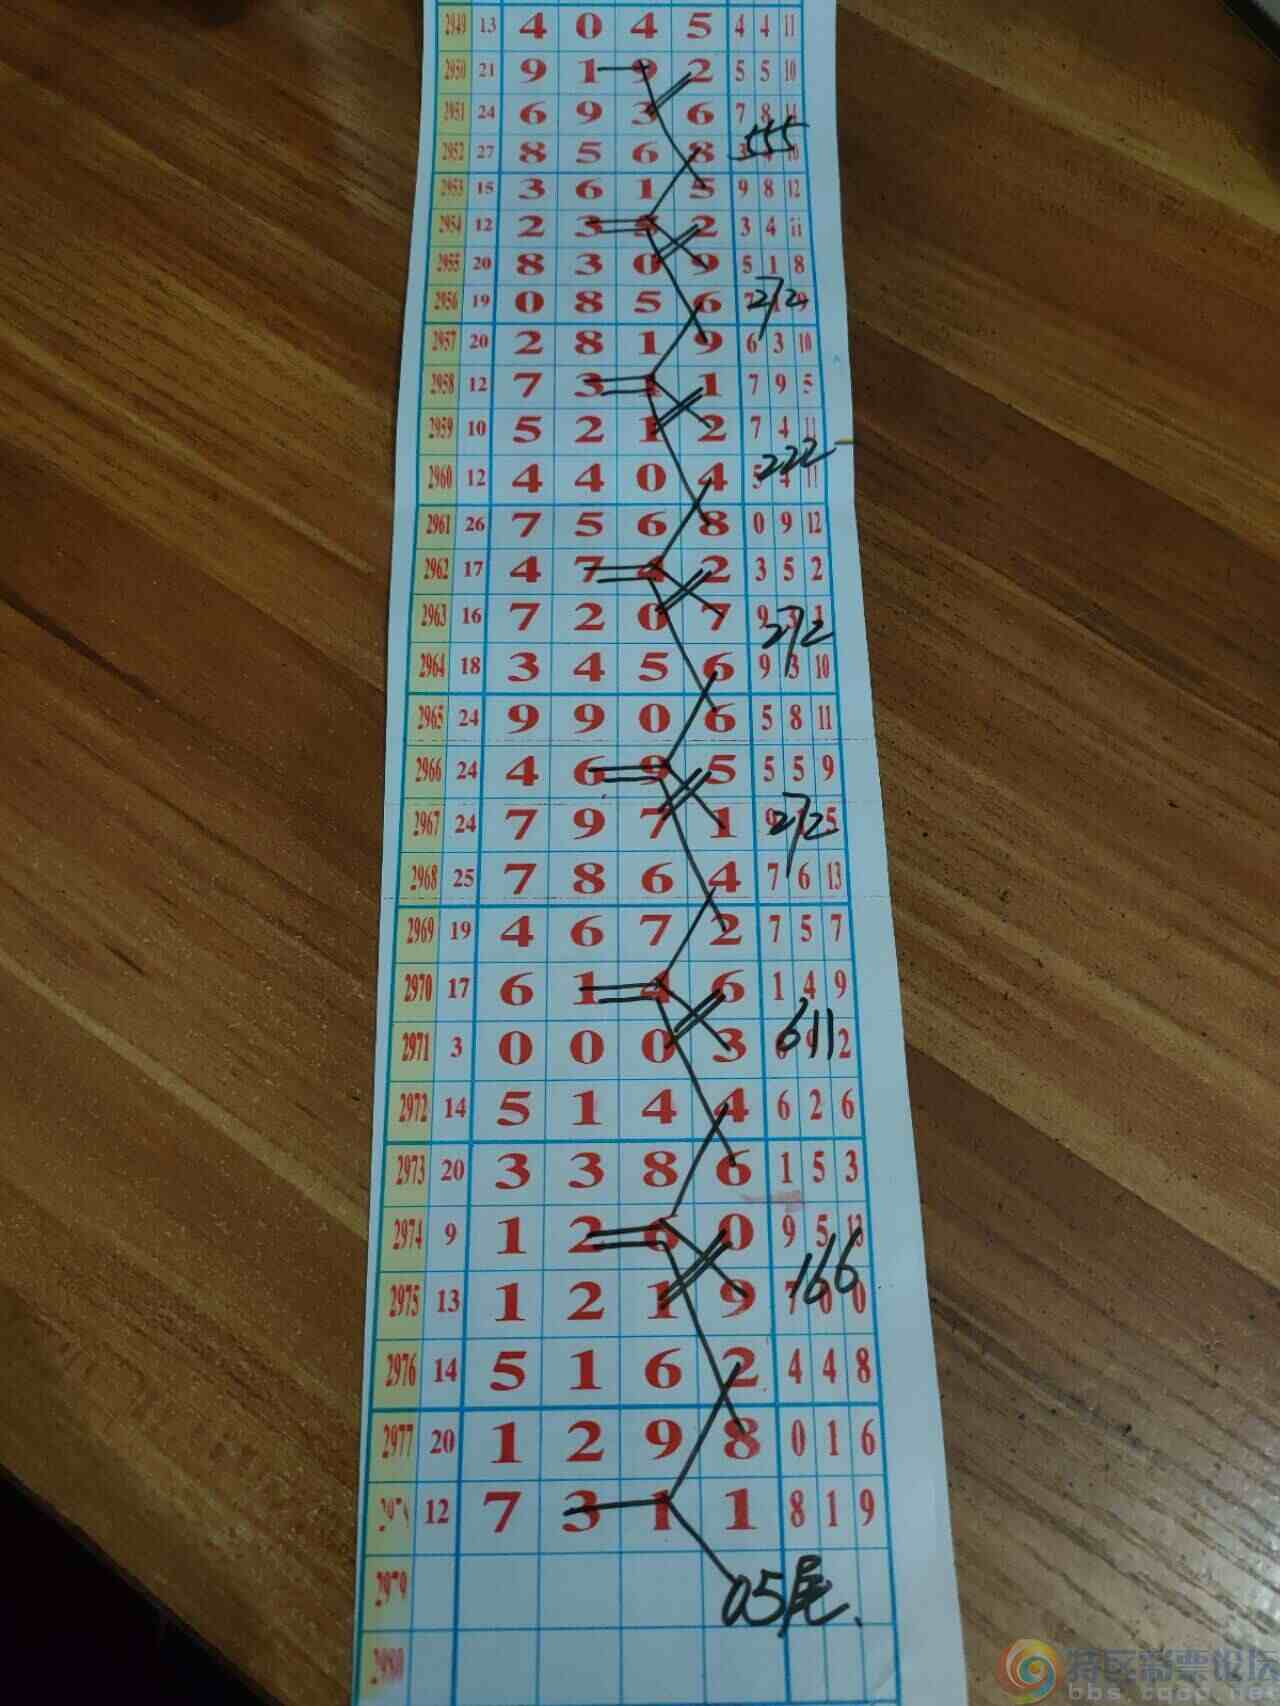 2949 13 4 0 4 5 4 4 11
2950 21 9 1 9 2 5 5 10
2951 24 6 9 3 6 7 8
2952 27 8 5 6 8 555
2953 15 3 6 1 5 9 8 12
2954 12 2 3 2 3 4 11
2955 20 8 3 0 9 5 1 8
2956 19 0 8 5 6 7 272 9
2957 20 2 8 1 9 6 3 10
2958 12 7 3 1 1 7 9 5
2959 10 5 2 1 2 7 4 11
2960 12 4 4 0 4 5 4 11 222
2961 26 7 5 6 8 0 9 12
2962 17 4 7 4 2 3 5 2
2963 16 7 2 0 7 9 3 1 272
2964 18 3 4 5 6 9 3 10
2965 24 9 9 0 6 5 8 11
2966 24 4 6 9 5 5 5 9
2967 24 7 9 7 1 9 5 272
2968 25 7 8 6 4 7 6 13
2969 19 4 6 7 2 7 5 7
2970 17 6 1 4 6 1 4 9
2971 3 0 0 0 3 9 2 611
2972 14 5 1 4 4 6 2 6
2973 20 3 3 8 6 1 5 3
2974 9 1 2 6 0 9 5 13
2975 13 1 2 1 9 7 0 0 166
2976 14 5 1 6 2 4 4 8
2977 20 1 2 9 8 0 1 6
12 7 3 1 1 8 1 9
2979 05尾
2980
特区彩票论坛